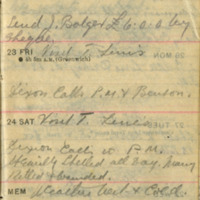 Send J. Bolger £6-0-0 by
cheque.
23 FRI Visit T. Lewis
Dixon Calls P.M & Benson.
24 SAT Visit T. Lewis
Dixon Calls in P.M.
Heavily Shelled all day. Many
Killed & wounded.
MEM Weather Wet & Cold.